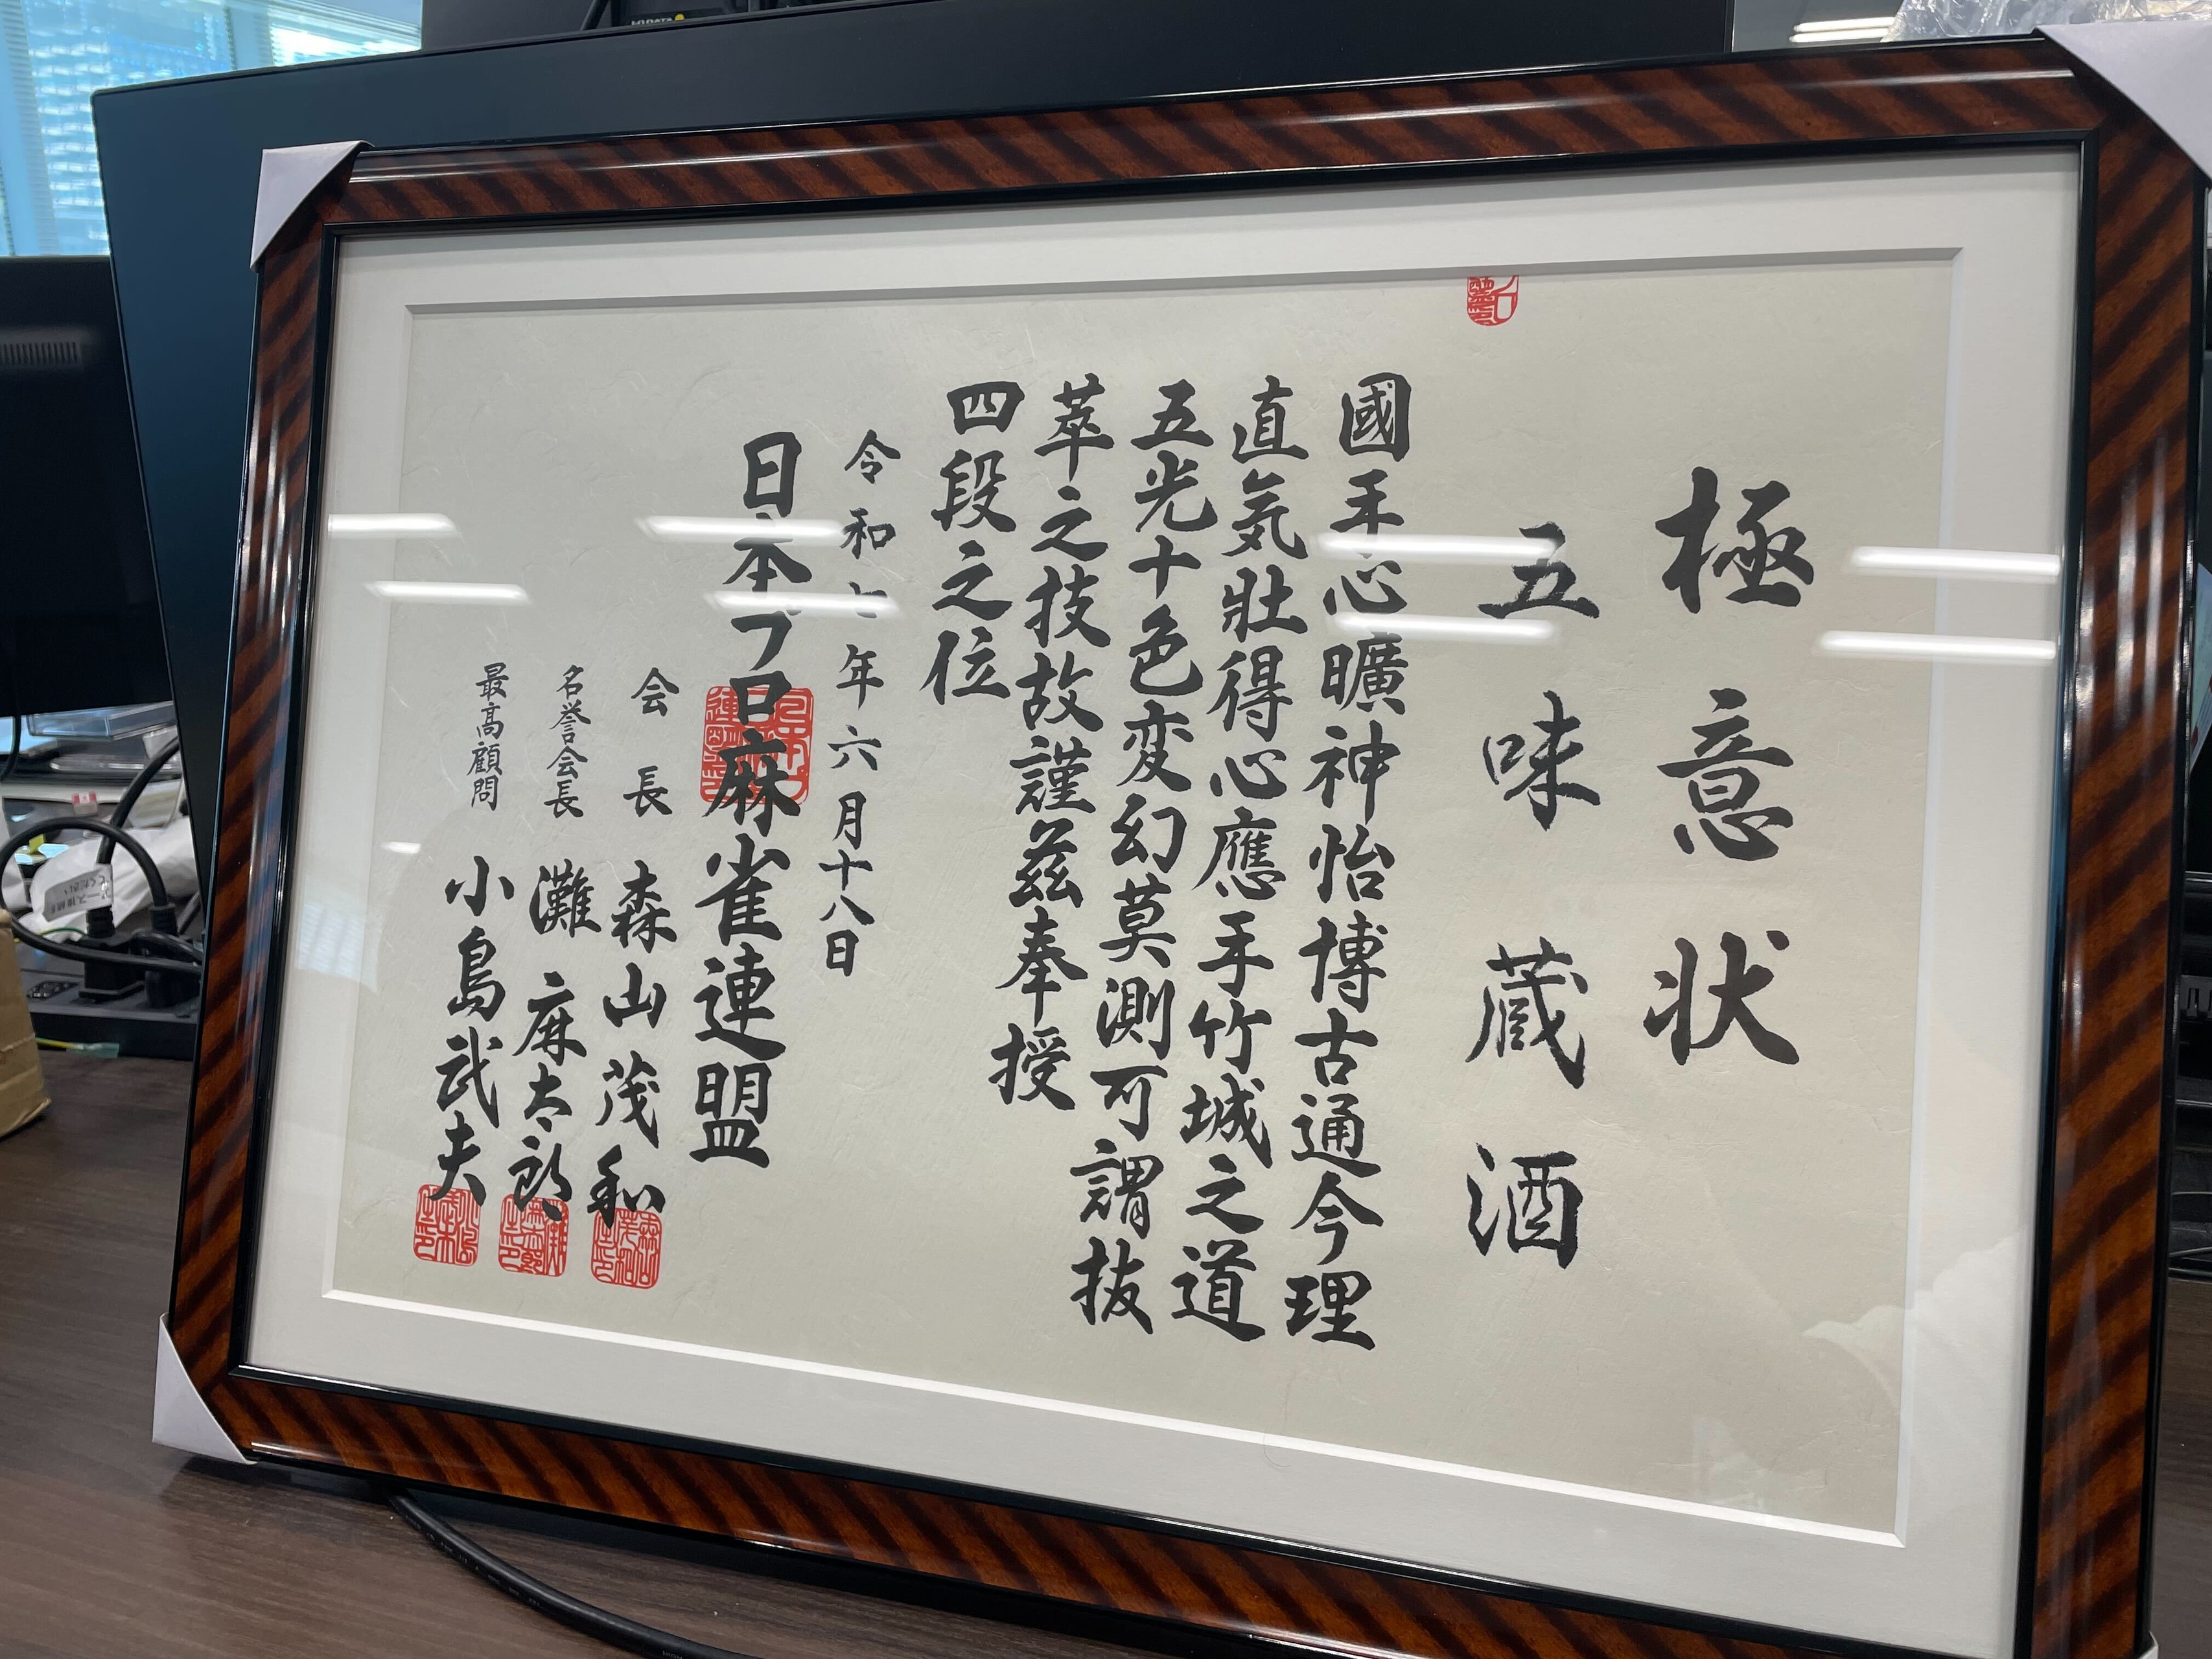 極意状
五味蔵酒
國手心曠神怡博古通今理
直気壮得心應手竹城之道
五光十色変幻莫測可謂抜
萃之技故謹茲奉授
四段之位
令和七年六月十八日
日本プロ麻雀連盟
会長 森山茂和
名誉会長 灘麻太郎
最高顧問 小島武夫